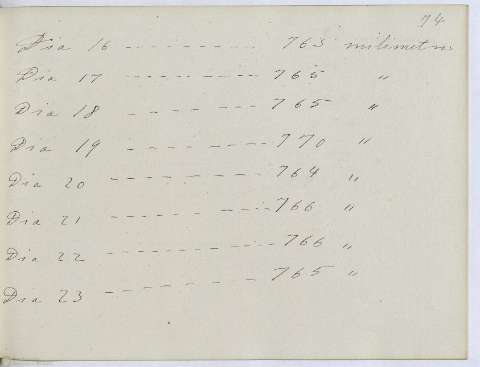 74
Dia 16 --------- 763 milimetros
Dia 17 --------- 765 "
Dia 18 ------ 765 "
Dia 19 --------- 770 "
Dia 20 --------- 764 "
Dia 21 --------- 766 "
Dia 22 ---------- 766 "
Dia 23 --------- 765 "